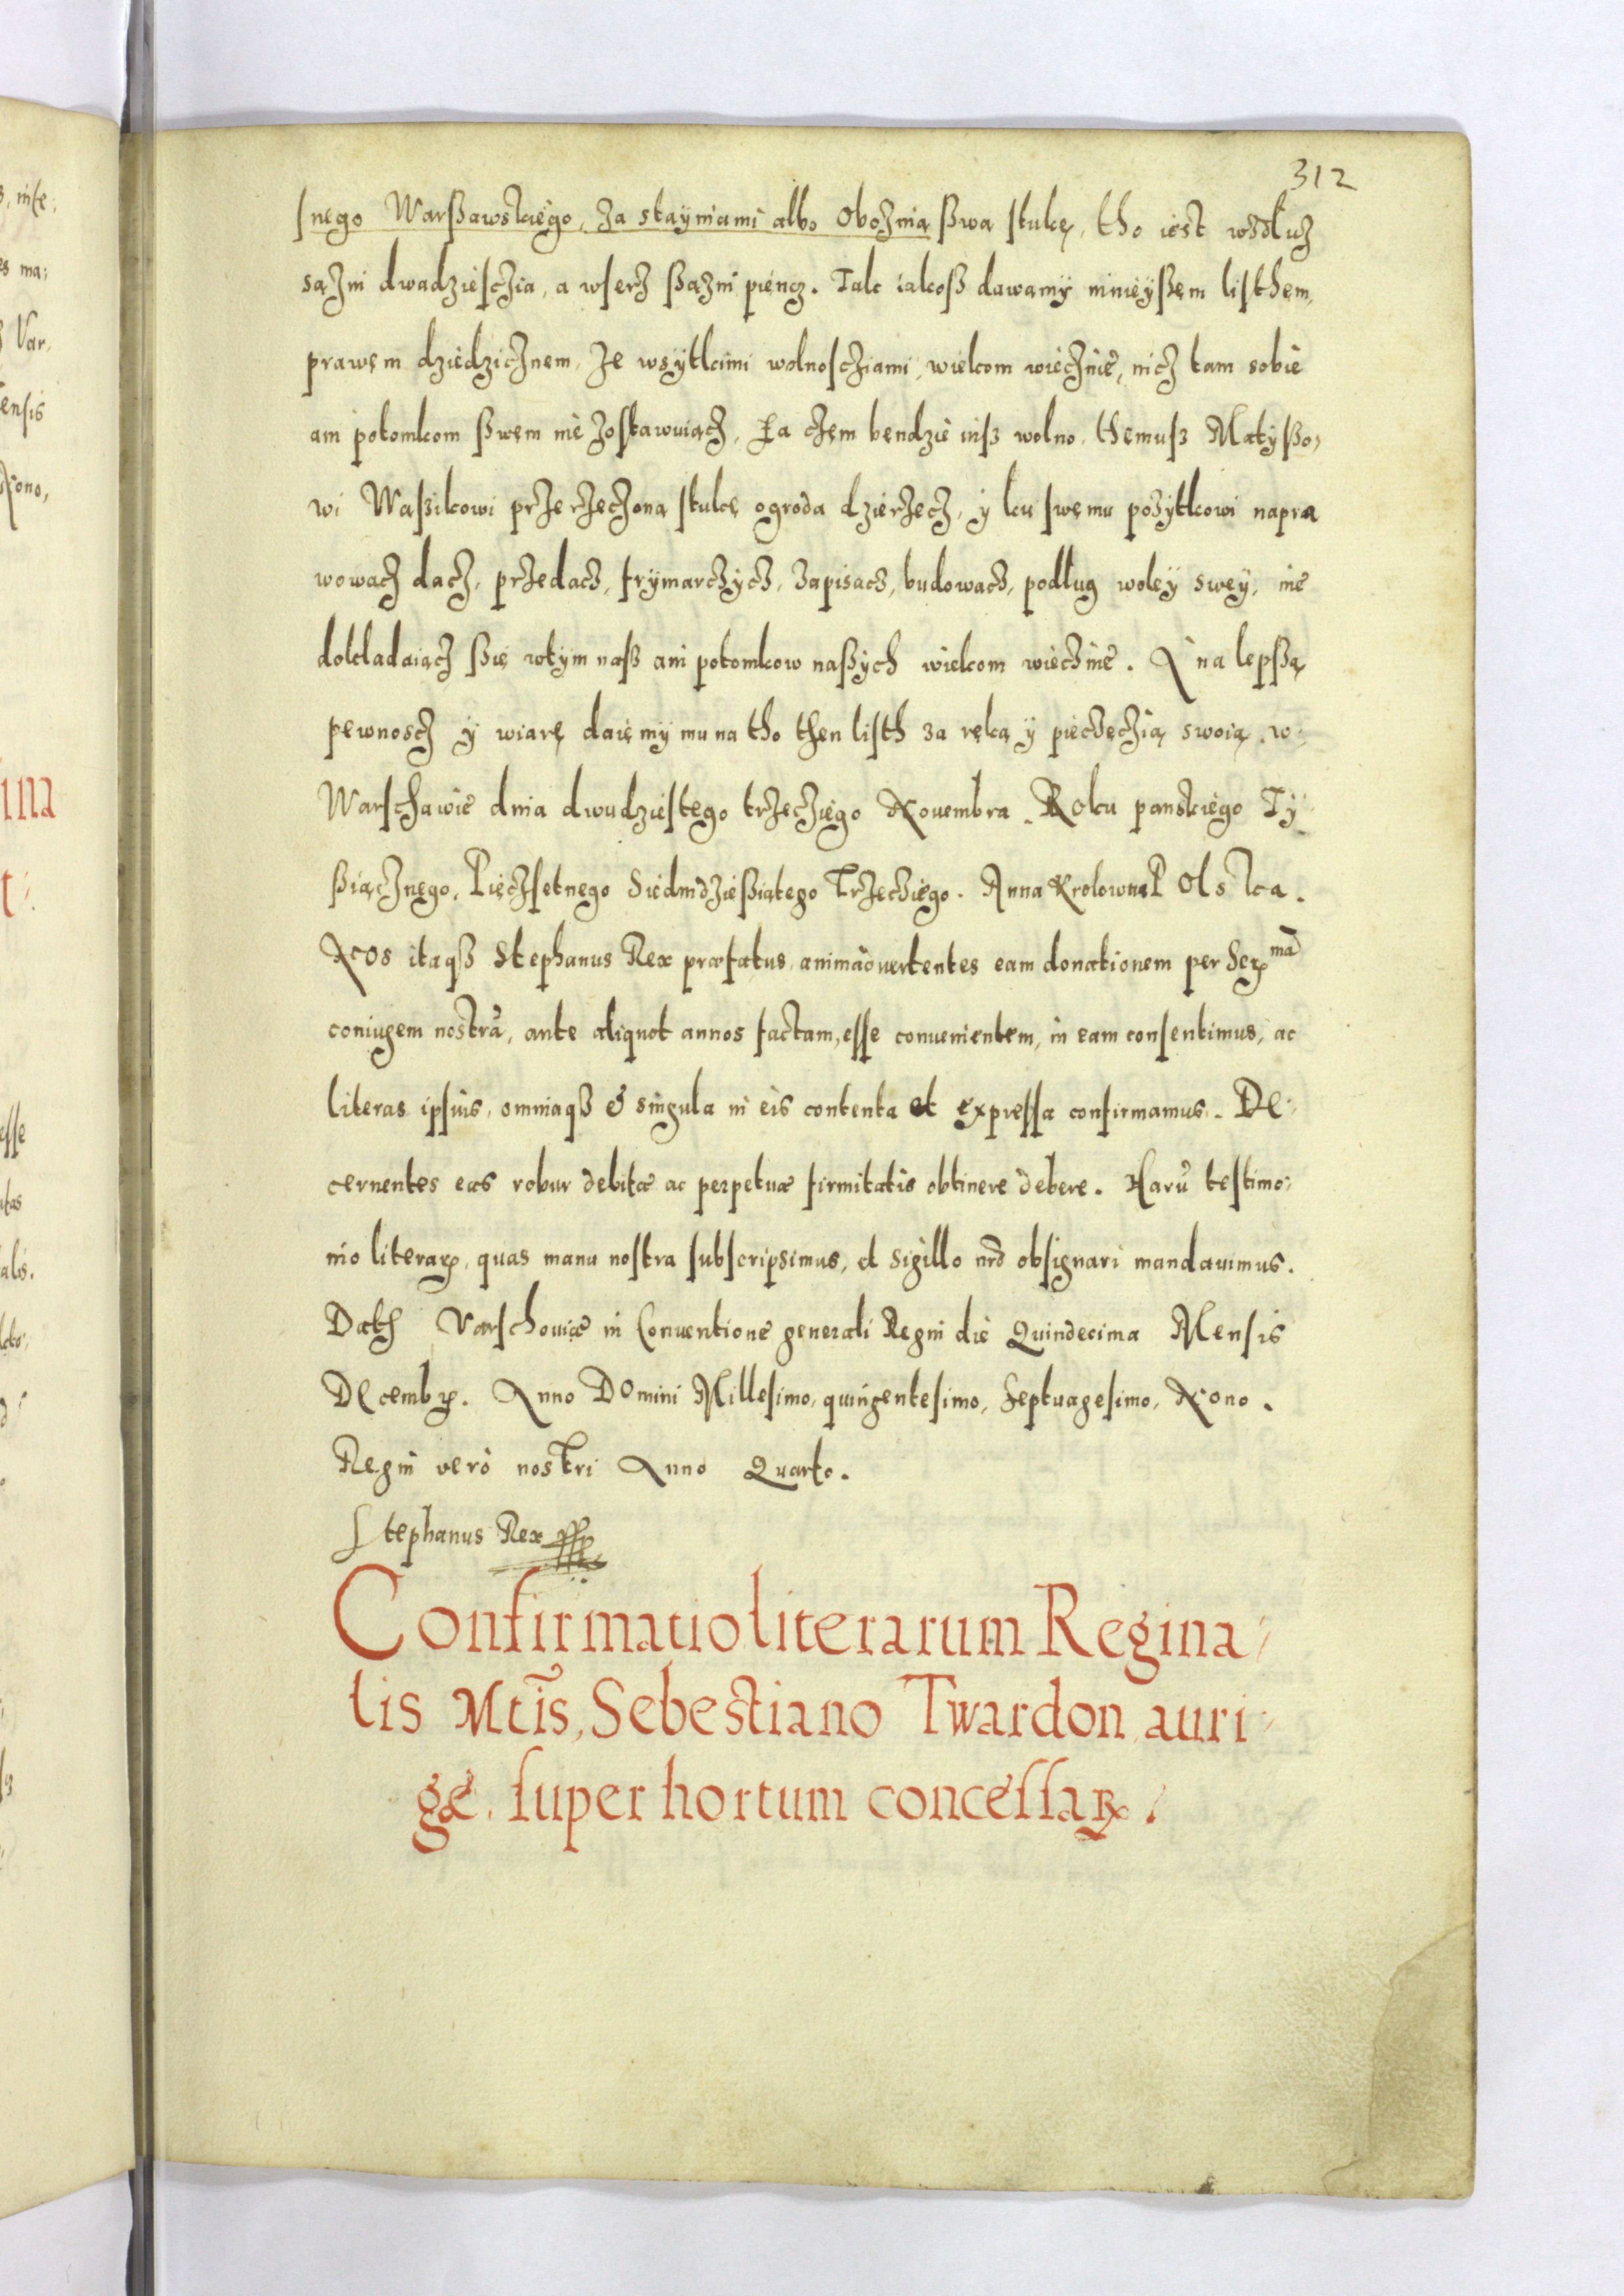 312
snego Warßawskiego, za stayniami albo Oboznią ßwą stukę, tho iest wzdłuz
sązni dwadziesczia, a wserz ßązni piencz. Tak iakoß dawamÿ ninieÿßem listhem,
prawem dziedzicznem, ze wsÿtkimi wolnoscziami, wiekom wiecznie, nicz tam sobie
ani potomkom ßwem nie zostawuiącz, Za czem bendzie iuß wolno, themuß Matÿßo,
wi Waßilkowi przerzeczoną stukę ogroda dzierzecz, ÿ ku swemu pozÿtkowi napra
wowacz dacz, przedacz, frÿmarczÿcz, zapisacz, budowacz, podług woleÿ sweÿ, nie
dokladaiącz ßię wtÿm naß ani potomkow naßÿch wiekom wiecznie. A na lepßą
pewnoscz ÿ wiarę daiemÿ mu na tho then listh za ręką ÿ pieczęczią swoią. w
Warschawie dnia dwudziestego trzecziego Nouembra. Roku panskiego Tÿ
ßiącznego, Pięczsetnego Siedmdzießiątego Trzecziego. Anna Krolowna POlska.
Nos itaqß Stephanus Rex præfatus, animaduertentes eam donationem per Serꝫ^mã
coniugem nostrã, ante aliquot annos factam, esse conuenientem, in eam consentimus, ac
literas ipsius, omniaqß & singula in eis contenta et expressa confirmamus. De:
cernentes eas robur debitæ ac perpetuæ firmitatis obtinere debere. Harũ testimo:
nio literaꝝ, quas manu nostra subscripsimus, et sigillo nrõ obsignari mandauimus.
Datȝ Varschouiæ in Conuentione generali Regni die Quindecima Mensis
DEcembꝝ. Anno DOmini Millesimo, quingentesimo, Septuagesimo, Nono.
Regni verò nostri Anno Quarto.
Stephanus Rex
Confirmatio literarum Regina:
lis Mtĩs, Sebestiano Twardon, auri:
gæ, super hortum concessaꝝ.